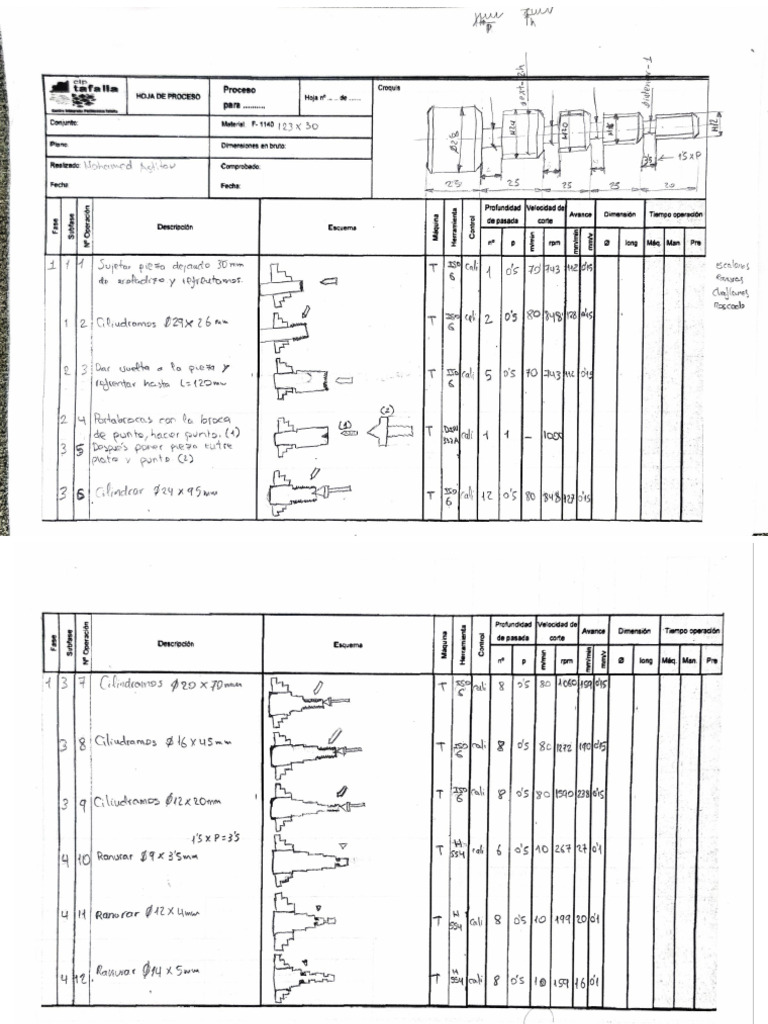 cip
tafalla
HOJA DE PROCESO
Proceso
para ..........
Hoja nº ..... de ......
Croquis
Conjunto:
Material: F-1140 123 x 30
Plano:
Dimensiones en bruto:
Realizado: Mohamed
Comprobado:
Fecha:
Fecha:
Ø28
M24
M20
M16
M12
3'5
1'5xP
25 25 25 25 20
Fase Subfase Nº Operación Descripción Esquema Máquina Herramienta Control Profundidad de pasada Velocidad de corte Avance Dimensión Tiempo operación
nº p m/min rpm mm/min mm/v Ø long Máq. Man. Pre
1 1 1 Sujetar pieza dejando 30mm
de voladizo y refrentamos.
T ISO 6 cali 1 0'5 70 743 112 0'15
escalones
Ranuras
Chaflanes
Roscado
1 2 Cilindramos Ø29 x 26 mm T ISO 6 cali 2 0'5 80 848 128 0'15
2 3 Dar vuelta a la pieza y
refrentar hasta L=120mm
T ISO 6 cali 5 0'5 70 743 0'15
2 4 Portabrocas con la broca
de punto, hacer punto. (1)
(1) (2)
T DIN cali 1 1 - 1000
3 5 Después poner pieza entre
plato y punto (2)
3 6 Cilindrar Ø24 x 95mm T ISO 6 cali 12 0'5 80 848 127 0'15
Fase Subfase Nº Operación Descripción Esquema Máquina Herramienta Control Profundidad de pasada Velocidad de corte Avance Dimensión Tiempo operación
nº p m/min rpm mm/min mm/v Ø long Máq. Man. Pre
1 3 7 Cilindramos Ø20 x 70mm T ISO 6 cali 8 0'5 80 1060 159 0'15
3 8 Cilindramos Ø16 x 45mm T ISO 6 cali 8 0'5 80 1272 190 0'15
3 9 Cilindramos Ø12x20mm T ISO 6 cali 8 0'5 80 1590 238 0'15
1'5 x P = 3'5
4 10 Ranurar Ø9 x 3'5mm T H 554 cali 6 0'5 10 267 27 0'1
4 11 Ranurar Ø12 x 4mm T H 554 cali 8 0'5 10 199 20 0'1
4 12 Ranurar Ø14 x 5mm T H 554 cali 8 0'5 10 159 16 0'1